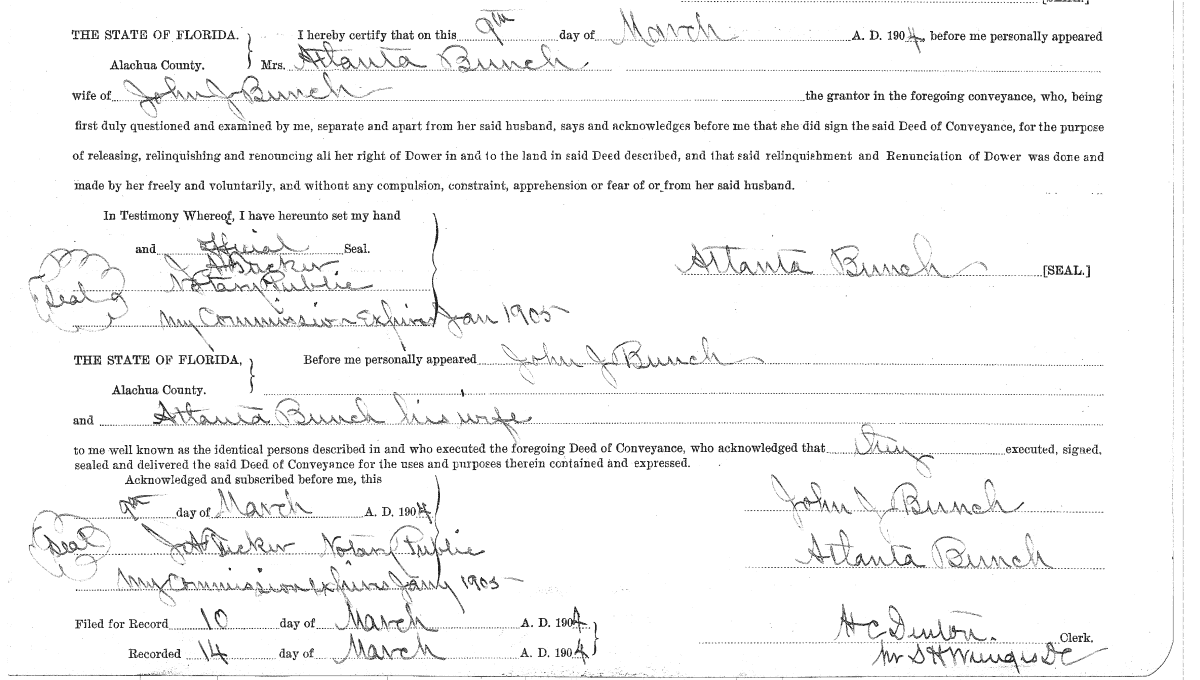 THE STATE OF FLORIDA. I hereby certify that on this 9th day of March A. D. 1904, before me personally appeared
Alachua County. Mrs. Atlanta Bunch.
wife of John J Bunch the grantor in the foregoing conveyance, who, being
first duly questioned and examined by me, separate and apart from her said husband, says and acknowledges before me that she did sign the said Deed of Conveyance, for the purpose
of releasing, relinquishing and renouncing all her right of Dower in and to the land in said Deed described, and that said relinquishment and Renunciation of Dower was done and
made by her freely and voluntarily, and without any compulsion, constraint, apprehension or fear of or from her said husband.
In Testimony Whereof, I have hereunto set my hand
and official Seal.
Atlanta Bunch [SEAL.]
Seal
Notary Public
My Commission Expires Jan 1905
THE STATE OF FLORIDA, Before me personally appeared John J Bunch
Alachua County.
and Atlanta Bunch his wife
to me well known as the identical persons described in and who executed the foregoing Deed of Conveyance, who acknowledged that they executed, signed,
sealed and delivered the said Deed of Conveyance for the uses and purposes therein contained and expressed.
Acknowledged and subscribed before me, this
9th day of March A. D. 1904
John J Bunch
Seal Notary Public
Atlanta Bunch
My Commission expires Jany 1905
Filed for Record 10 day of March A. D. 1904
H C Denton. Clerk.
Recorded 14 day of March A. D. 1904